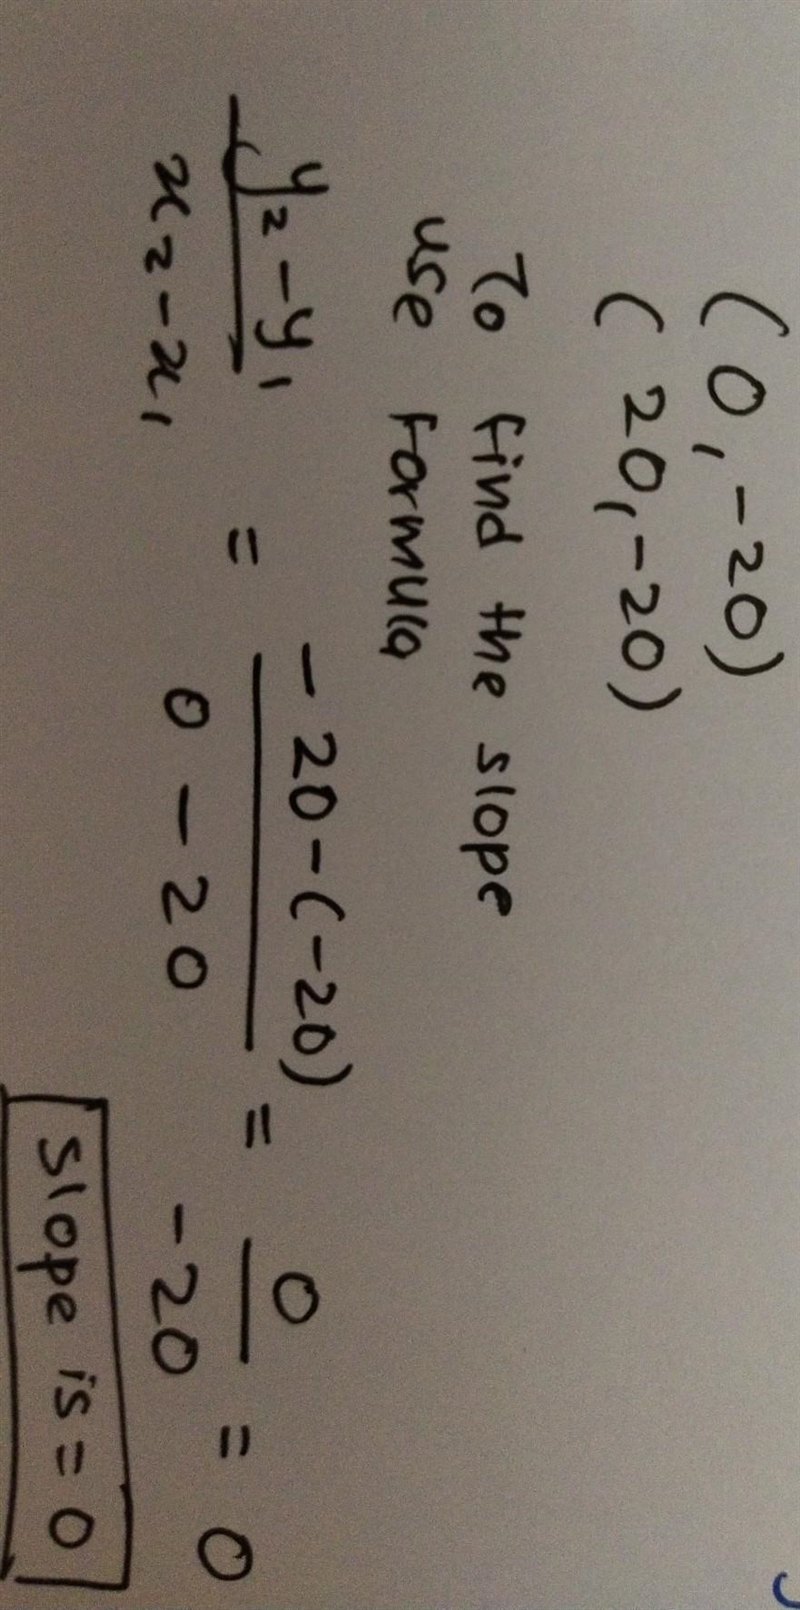 (0, -20)
(20, -20)
To find the slope
use formula
y₂ - y₁ / x₂ - x₁ = -20 - (-20) / 0 - 20 = 0 / -20 = 0
Slope is = 0